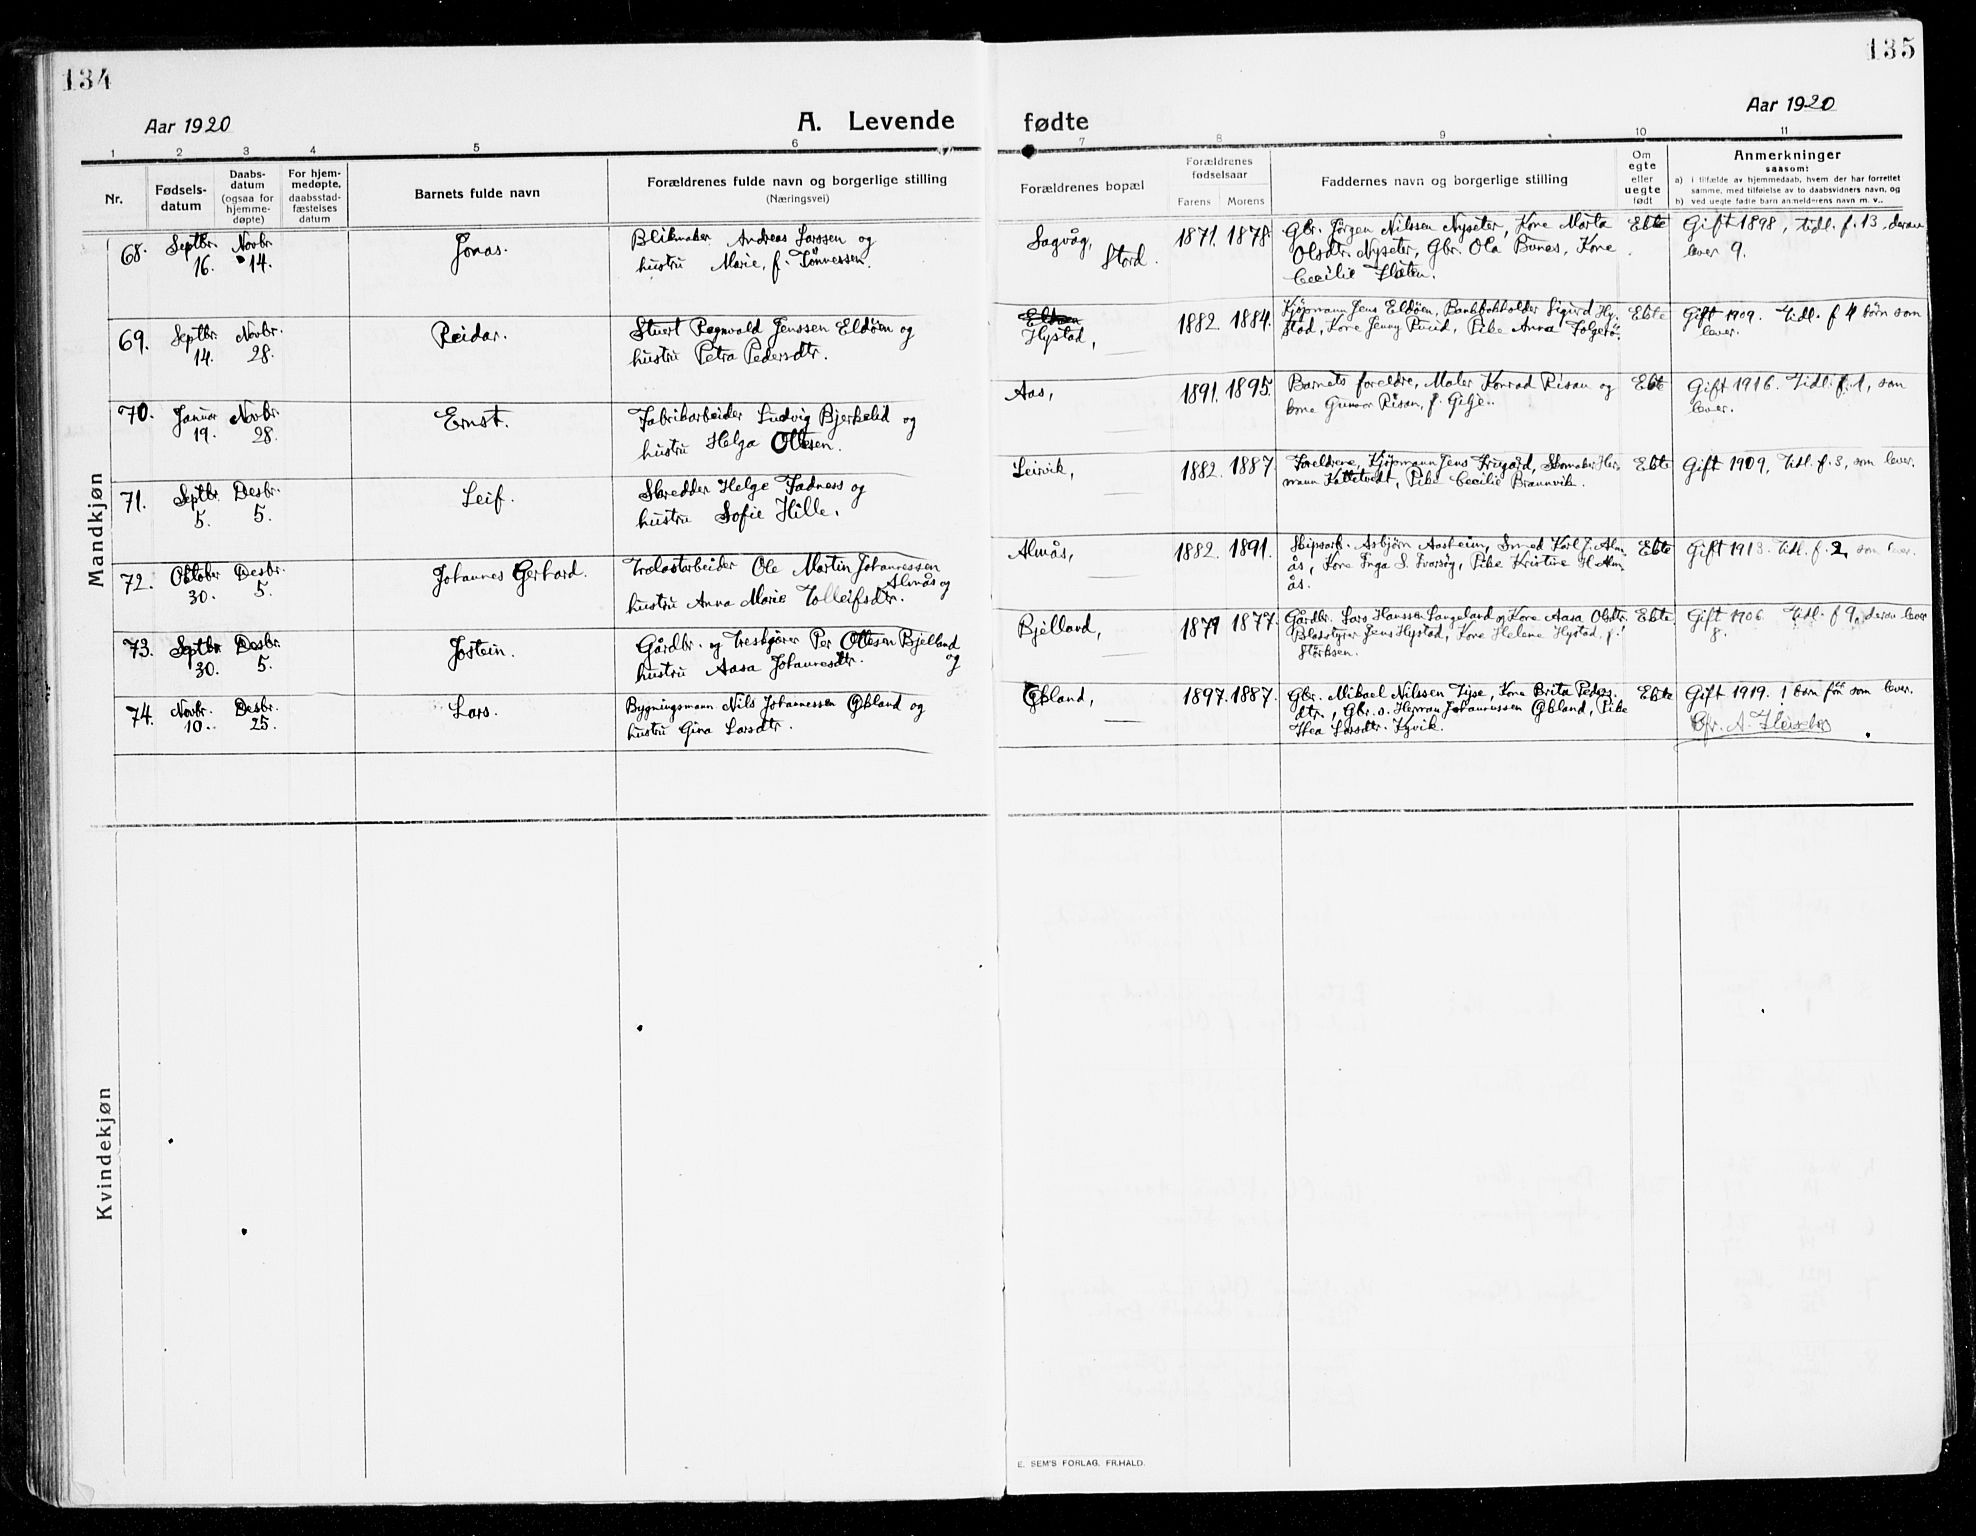 134
135
Aar 1920
A. Levende
fødte
Aar 1920
1 2 3 4 5 6
7 8 9 10 11
Nr.
Fødsels-
datum
Daabs-
datum
(ogsaa for
hjemme-
døpte)
For hjem-
medøpte,
daabsstad-
fæstelses
datum
Barnets fulde navn
Forældrenes fulde navn og borgerlige stilling
(Næringsvei)
Forældrenes bopæl
Forældrenes
fødselsaar
Farens Morens
Faddernes navn og borgerlige stilling
Om
egte
eller
uegte
født
Anmerkninger
saasom:
a) i tilfælde av hjemmedaab, hvem der har forrettet
samme, med tilføielse av to daabsvidners navn, og
b) ved uegte fødte barn anmelderens navn m. v..
Mandkjøn
68. Septbr. 16. Novbr. 14. Jonas.
Blikmaker Andreas Larssen og
hustru Marie, f. Tönnessen.
Sagvåg,
Stord.
1871. 1878.
Gbr. Jörgen Nilssen Nyseter, Kone Marta
Olsdtr. Nyseter, Gbr. Ola Bones, Kone
Cecilie Flaten.
Ekte
Gift 1898, tidl. f. 13, derav
lever 9.
69. Septbr. 14. Novbr. 28. Reidar.
Stuert Ragnvald Jenssen Eldöen og
hustru Petra Pedersdtr.
Eldöen
Hystad,
1882. 1884.
Kjöpmann Jens Eldöen, Bankbokholder Sigurd Hy-
stad, Kone Jenny Ruud, Pike Anna Folgerö.
Ekte
Gift 1909. Tidl. f 4 börn som
lever.
70. Januar 19. Novbr. 28. Ernst.
Fabrikarbeider Ludvig Bjerkelid og
hustru Helga Ottesen.
Aas,
1891. 1895.
Barnets foreldre, Maler Konrad Risan og
kone Gunvor Risan, f. Gilje.
Ekte
Gift 1916. Tidl. f. 1, som
lever.
71. Septbr. 5. Desbr. 5. Leif.
Skredder Helge Fadness og
hustru Sofie Hille.
Leirvik,
1882. 1887.
Foreldrene, Kjöpmann Jens Frugård, Skomaker Her-
mann Kattetvedt, Pike Cecilie Brannvik.
Ekte
Gift 1909, Tidl. f. 3, som lever.
72. Oktober 30. Desbr. 5. Johannes Gerhard.
Trelastarbeider Ole Martin Johannessen
Almås og
hustru Anna Marie Tolleifsdtr.
Almås,
1882. 1891.
Skipsarb. Asbjörn Aasheim, Smed Karl J. Alm-
ås, Kone Inga S. Ivarsög, Pike Kristine H. Alm-
ås.
Ekte
Gift 1913. Tidl. f. 2, som lever.
73. Septbr. 30. Desbr. 5. Jostein.
Gårdbr. og Treskjærer Per Ottesen Bjelland
og
hustru Aasa Johannesdtr.
Bjelland,
1879 1877.
Gårdbr. Lars Hanssen Langeland og Kone Aasa Olsdtr.
Jens Hystad, Kone Helene Hystad, f.
Störksen.
Ekte
Gift 1906. Tidl. f 9, derav lever
8.
74. Novbr. 10. Desbr. 25. Lars.
Bygningsmann Nils Johannessen Økland og
hustru Gina Larsdtr.
Økland,
1897. 1887.
Gbr. Mikael Nilssen Tyse, Kone Brita Peders-
dtr., Gbr. s. Herman Johannessen Økland, Pike
Thea Larsdtr. Kyvik.
Ekte
Gift 1919. 1 barn för som lever.
Kvindekjøn
E. SEM'S FORLAG, FR.HALD.